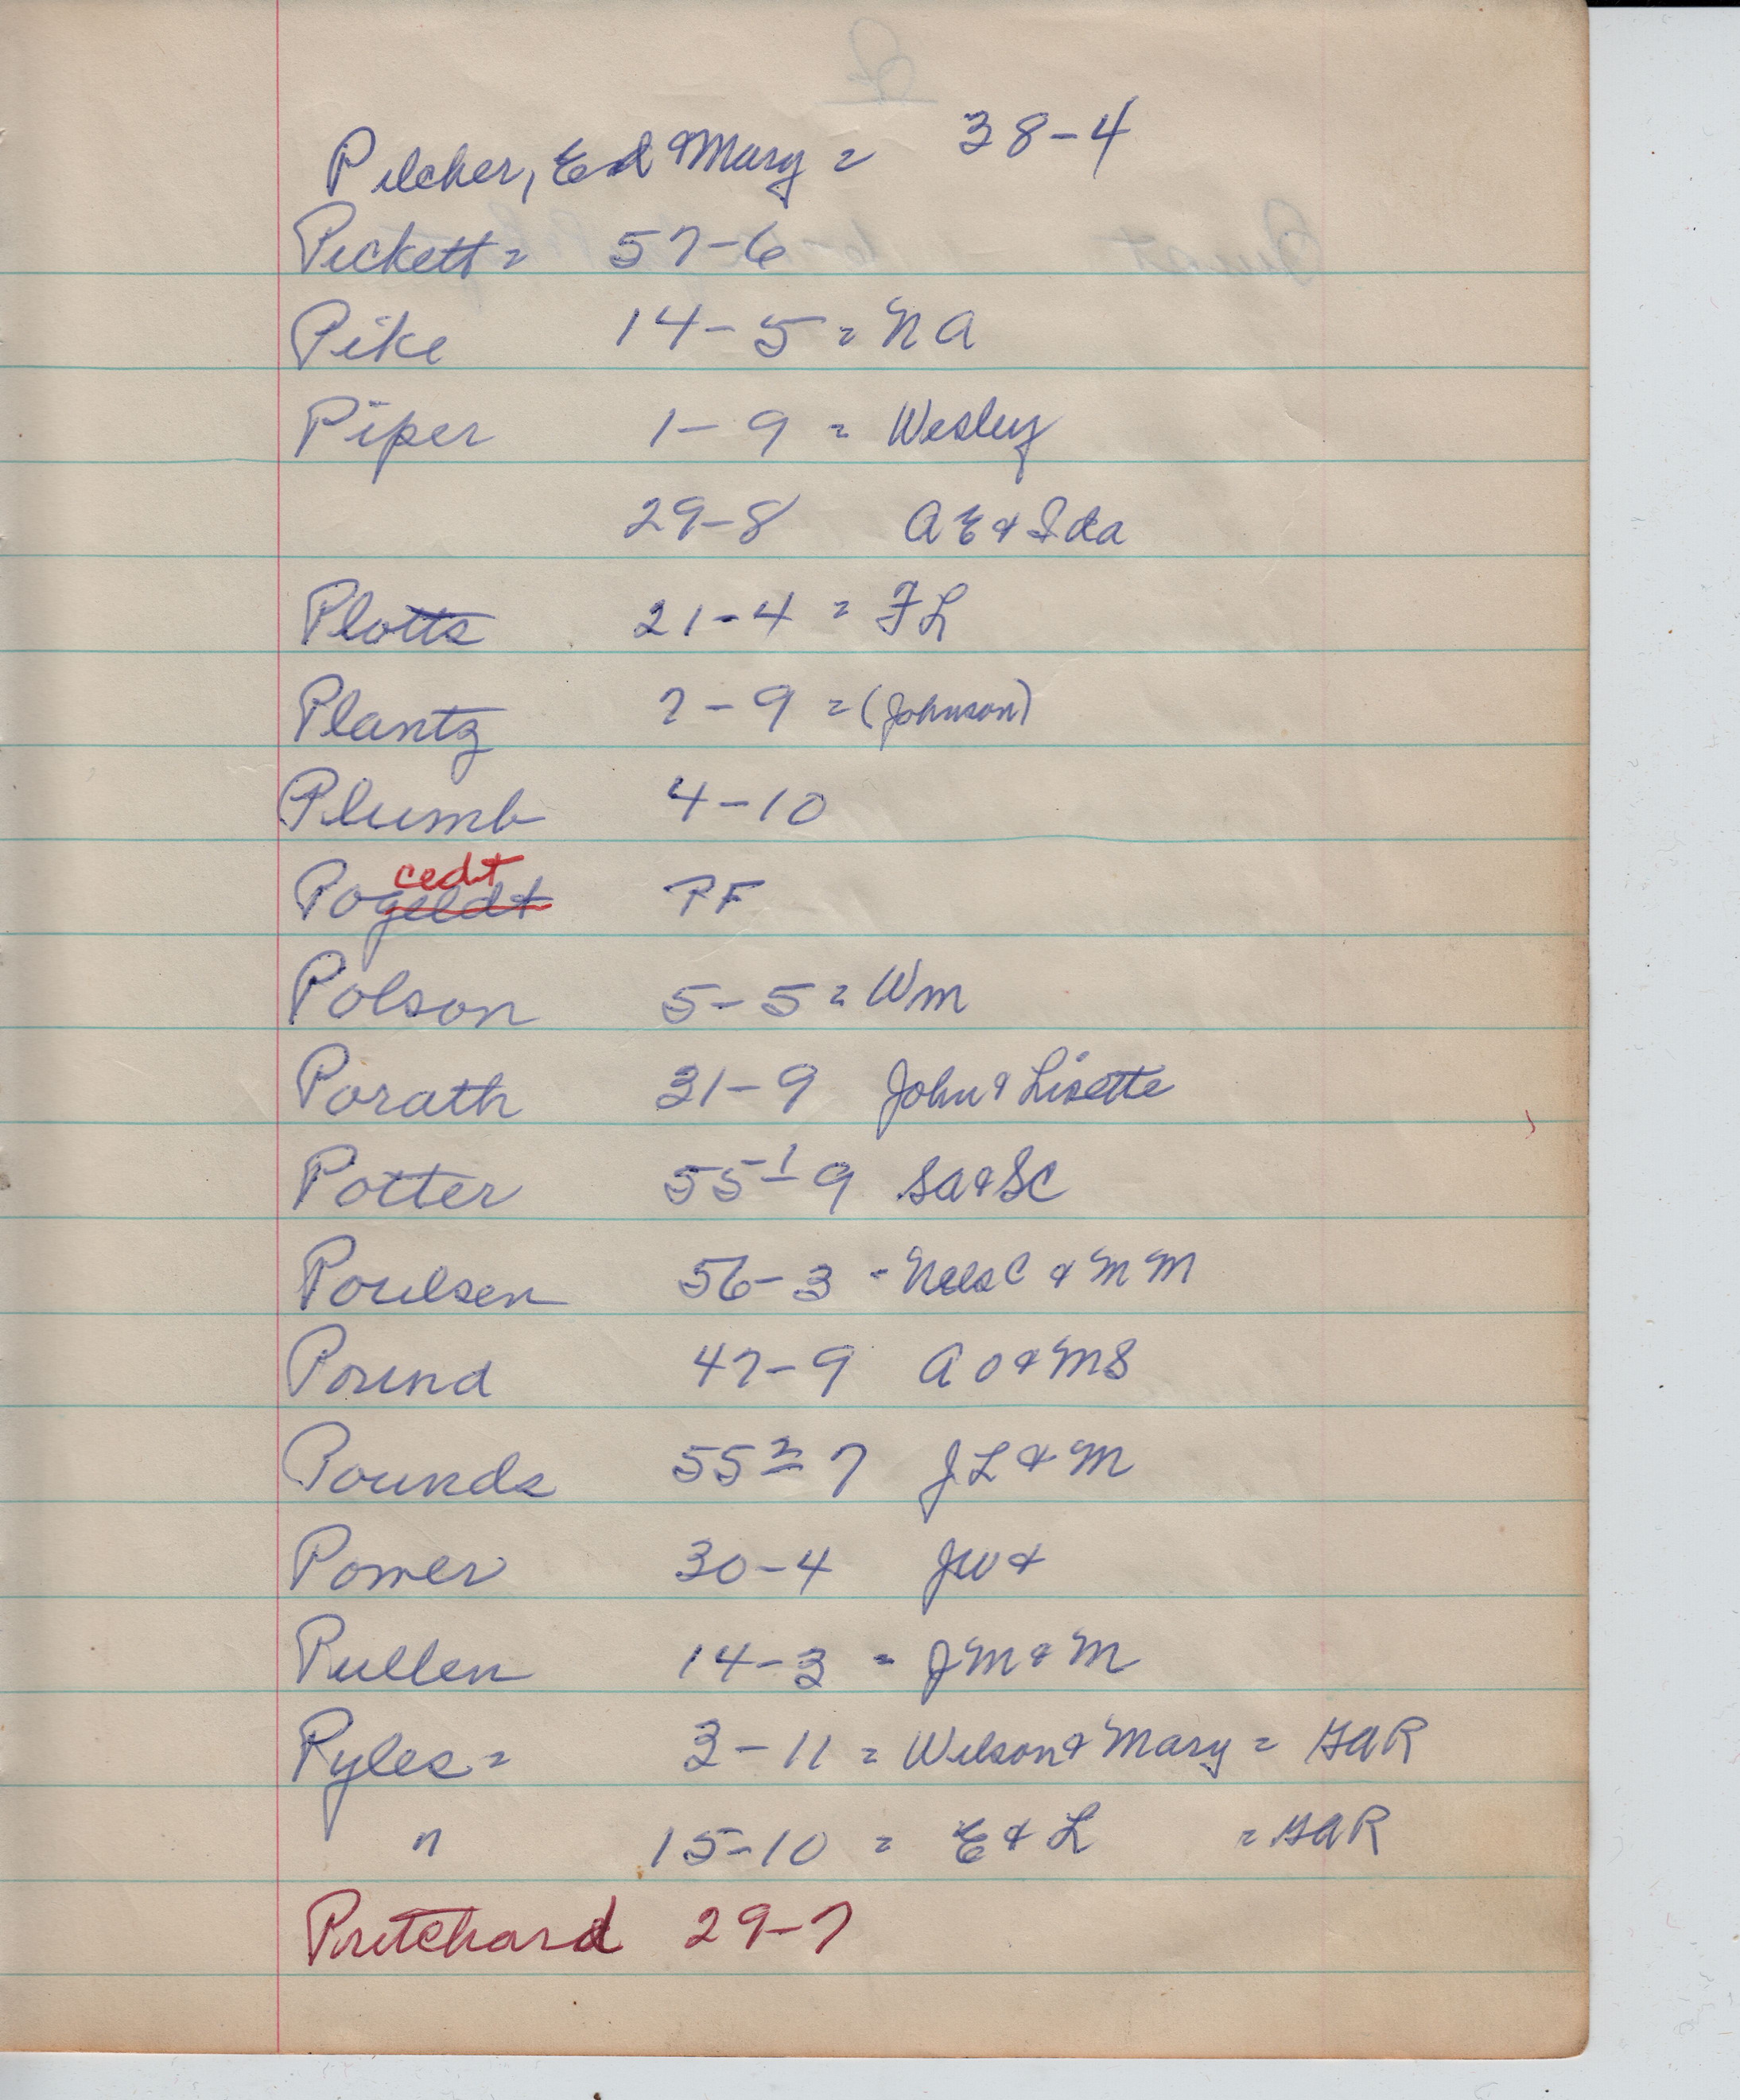 Pilcher, Ed & Mary = 38-4
Pickett = 57-6
Pike 14-5 = NA
Piper 1-9 = Wesley
29-8 AE & Ida
Plotts 21-4 = FL
Plantz 7-9 = (Johnson)
Plumb 4-10
cedt
Pogeldt PF
Polson 5-5 = Wm
Porath 31-9 John & Lisette
Potter 55-1-9 SA & SC
Poulsen 56-3 - Nels C & MM
Pound 47-9 AO & MS
Pounds 55-2-7 JL & M
Power 30-4 JW &
Pullen 14-3 = JM & M
Pyles = 3-11 = Wilson & Mary = GAR
" 15-10 = E & L = GAR
Pritchard 29-7